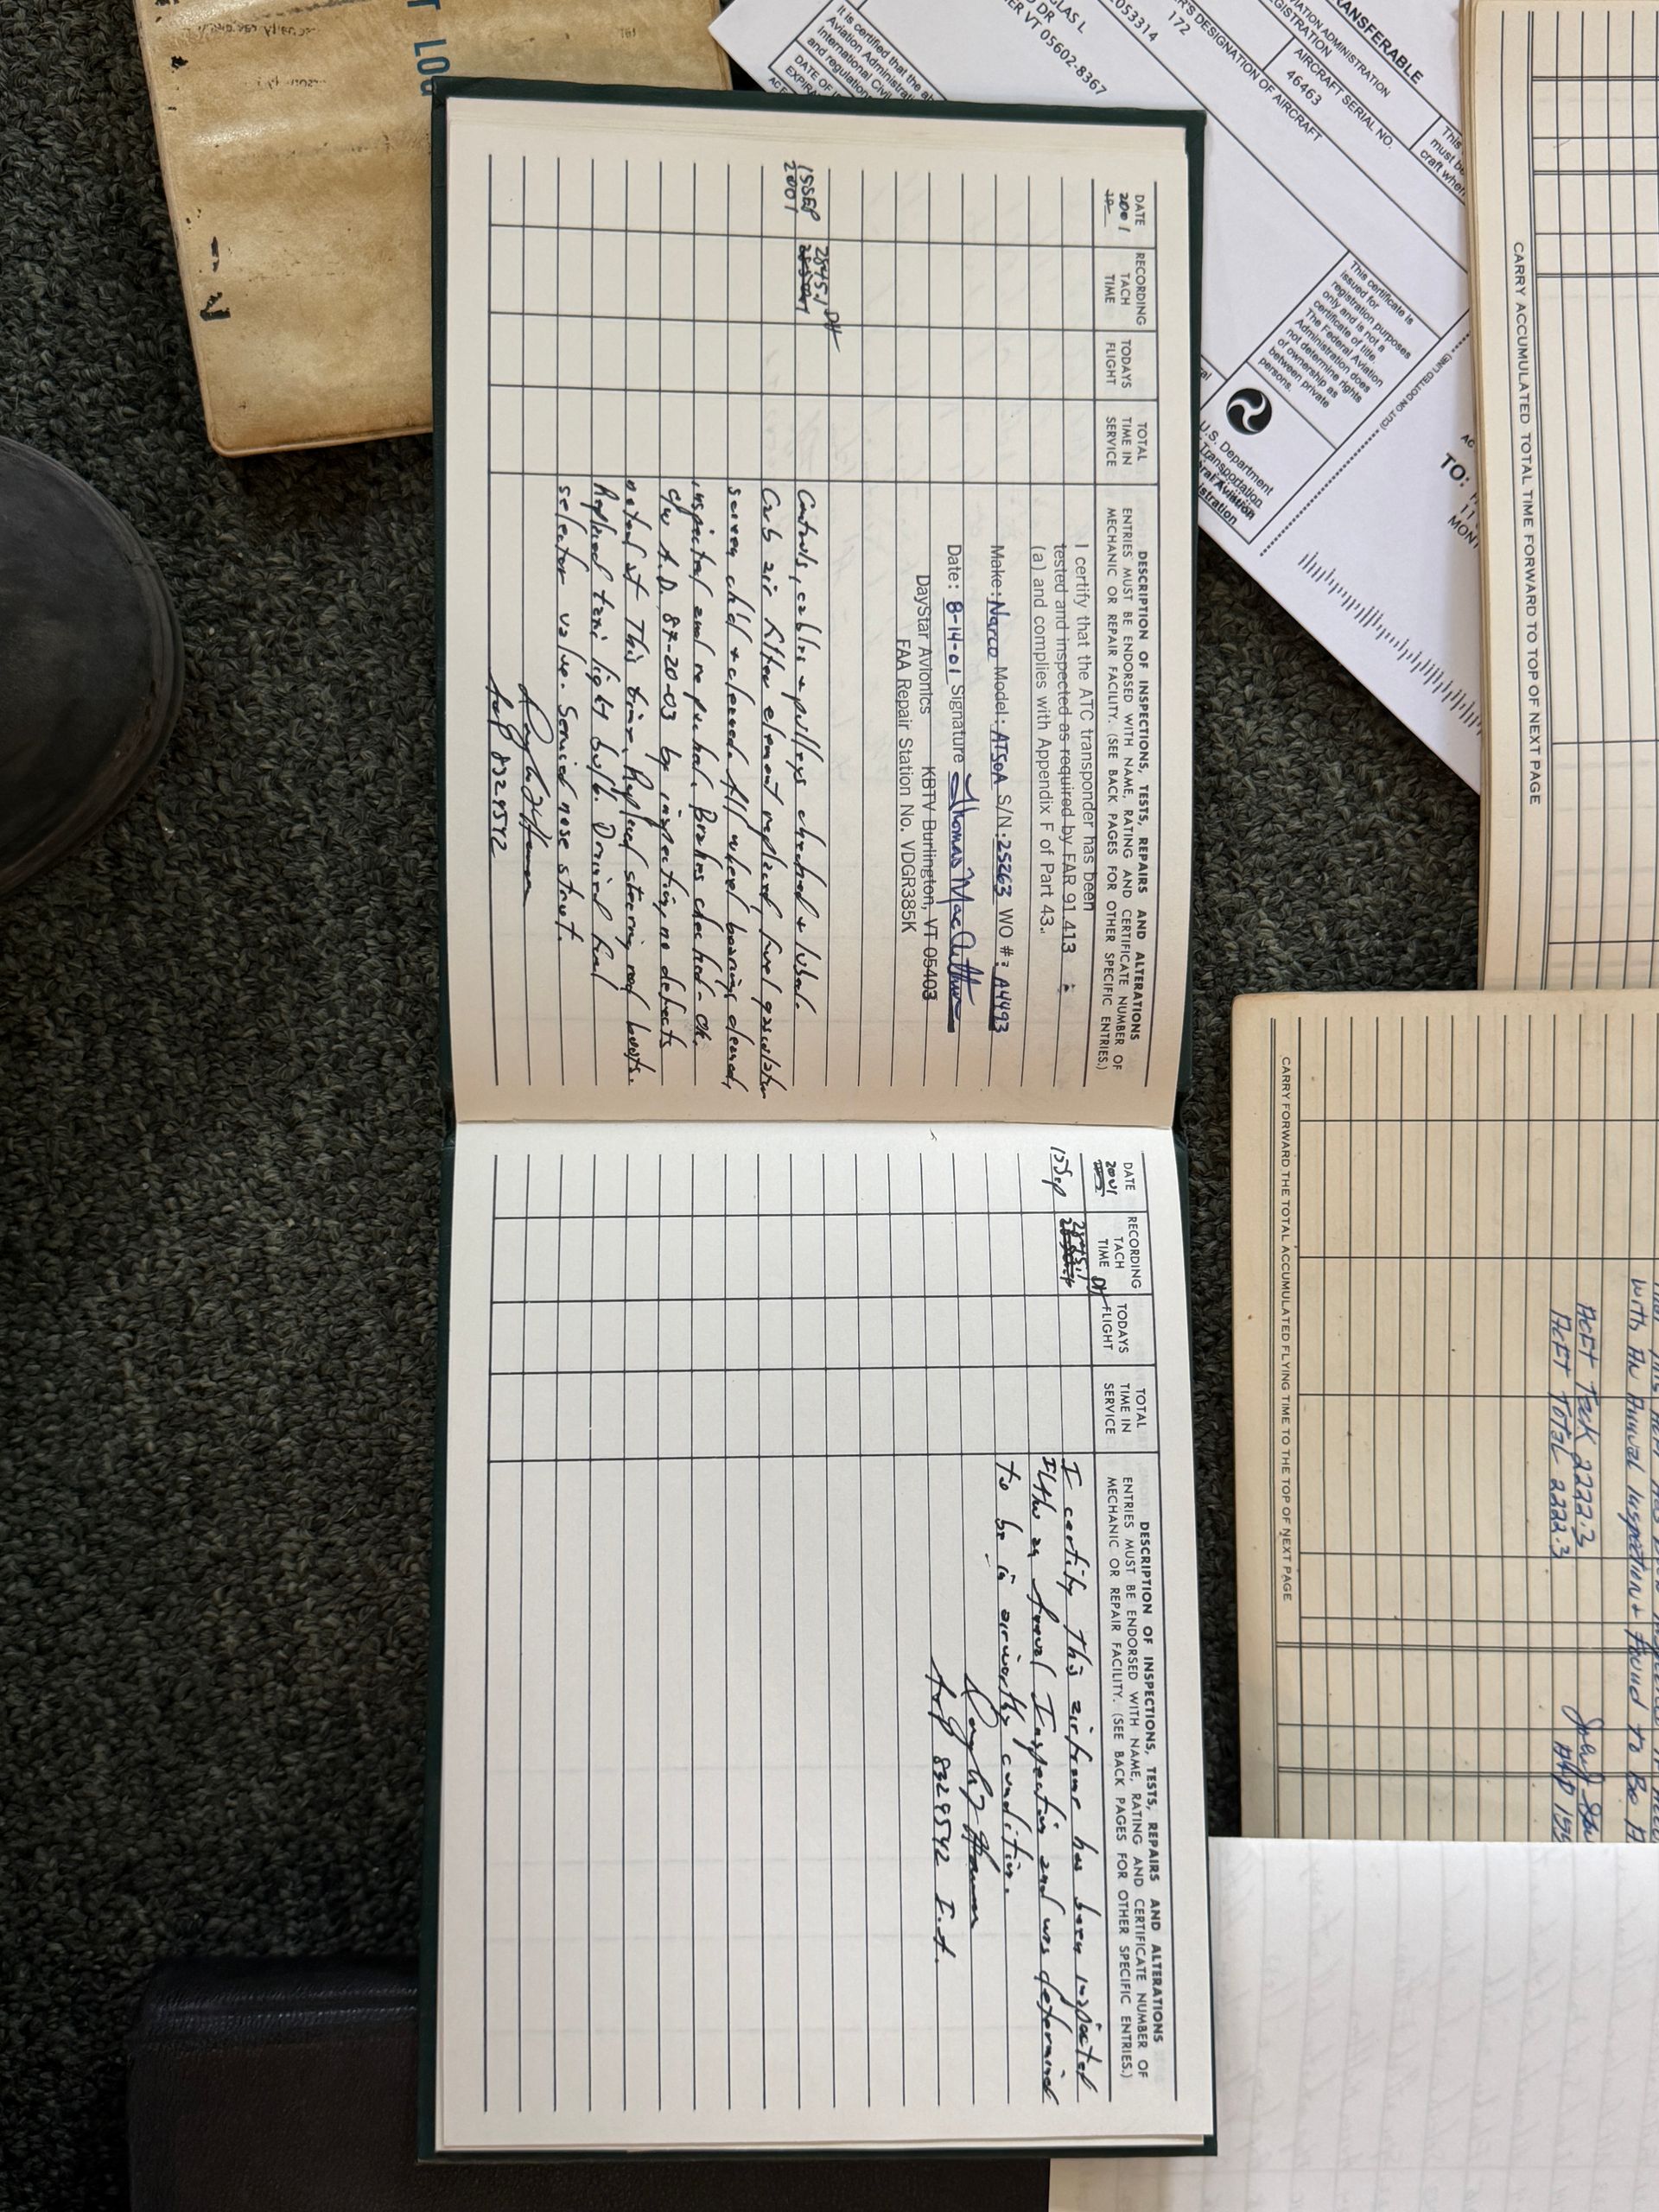 DATE
2001
RECORDING TACH TIME
TODAYS FLIGHT
TOTAL TIME IN SERVICE
DESCRIPTION OF INSPECTIONS, TESTS, REPAIRS AND ALTERATIONS
ENTRIES MUST BE ENDORSED WITH NAME, RATING AND CERTIFICATE NUMBER OF
MECHANIC OR REPAIR FACILITY. (SEE BACK PAGES FOR OTHER SPECIFIC ENTRIES.)
I certify that the ATC transponder has been
tested and inspected as required by FAR 91.413
(a) and complies with Appendix F of Part 43.
Make: Narco Model: AT50A S/N: 25263 WO #: A4493
Date: 8-14-01 Signature Thomas MacArthur
DayStar Avionics KBTV Burlington, VT 05403
FAA Repair Station No. VDGR385K
15SEP 2001 2845.1 DH Controls, cables & pulleys checked & lubed.
Carb air filter element replaced, fuel gascolator
screen chkd & cleaned. All wheel bearings cleaned,
inspected and repacked. Brakes checked - OK.
c/w A.D. 87-20-03 by inspection, no defects
noted at this time. Replaced steering rod boots.
Replaced taxi light bulb. Drained fuel
selector valve. Serviced nose strut.
A&P 8329542
DATE
2001
RECORDING TACH TIME
TODAYS FLIGHT
TOTAL TIME IN SERVICE
DESCRIPTION OF INSPECTIONS, TESTS, REPAIRS AND ALTERATIONS
ENTRIES MUST BE ENDORSED WITH NAME, RATING AND CERTIFICATE NUMBER OF
MECHANIC OR REPAIR FACILITY. (SEE BACK PAGES FOR OTHER SPECIFIC ENTRIES.)
15Sep 2845.1 DH I certify this airframe has been inspected
I/A/W an Annual Inspection and was determined
to be in airworthy condition.
A&P 8329542 I.A.
LOG
TRANSFERABLE
AVIATION ADMINISTRATION
REGISTRATION
AIRCRAFT SERIAL NO.
46463
'S DESIGNATION OF AIRCRAFT
172
053314
GLAS L
DR
ER VT 05602-8367
It is certified that the
Aviation Administra
International Civil
and regulation
DATE OF
EXPIRA
This
must be
craft when
This certificate is
issued for
registration purposes
only and is not a
certificate of title.
The Federal Aviation
Administration does
not determine rights
of ownership as
between private
persons.
U.S. Department
Transportation
ral Aviation
istration
(CUT ON DOTTED LINE)
TO:
MON
CARRY ACCUMULATED TOTAL TIME FORWARD TO TOP OF NEXT PAGE
with An Annual Inspection & Found to Be
AcFT Tack 2222.3
AcFT Total 2222.3
CARRY FORWARD THE TOTAL ACCUMULATED FLYING TIME TO THE TOP OF NEXT PAGE